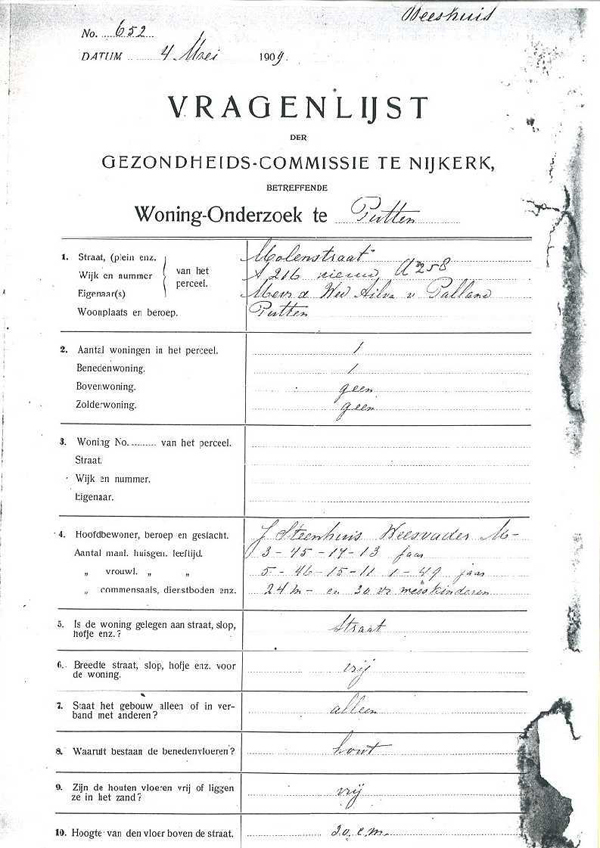 Weeshuis
No. 652
DATUM 4 Mei 1909.
VRAGENLIJST
DER
GEZONDHEIDS-COMMISSIE TE NIJKERK,
BETREFFENDE
Woning-Onderzoek te Putten
1. Straat, (plein enz. Molenstraat
Wijk en nummer van het perceel. A 216 nieuw A 258
Eigenaar(s) Mevr d Wed Ailva v Palland
Woonplaats en beroep. Putten
2. Aantal woningen in het perceel. 1
Benedenwoning. 1
Bovenwoning. geen
Zolderwoning. geen
3. Woning No. van het perceel.
Straat.
Wijk en nummer.
Eigenaar.
4. Hoofdbewoner, beroep en geslacht. J Steenhuis Weesvader M-
Aantal manl. huisgen. leeftijd. 3-45-14-13 jaar
„ vrouwl. „ „ 5-46-15-11 1-49 jaar
„ commensaals, dienstboden enz. 24 m- en 30 vr weeskinderen
5. Is de woning gelegen aan straat, slop, hofje enz.? Straat
6. Breedte straat, slop, hofje enz. voor de woning. vrij
7. Staat het gebouw alleen of in verband met anderen? alleen
8. Waaruit bestaan de benedenvloeren? hout
9. Zijn de houten vloeren vrij of liggen ze in het zand? vrij
10. Hoogte van den vloer boven de straat. 20 c.m.